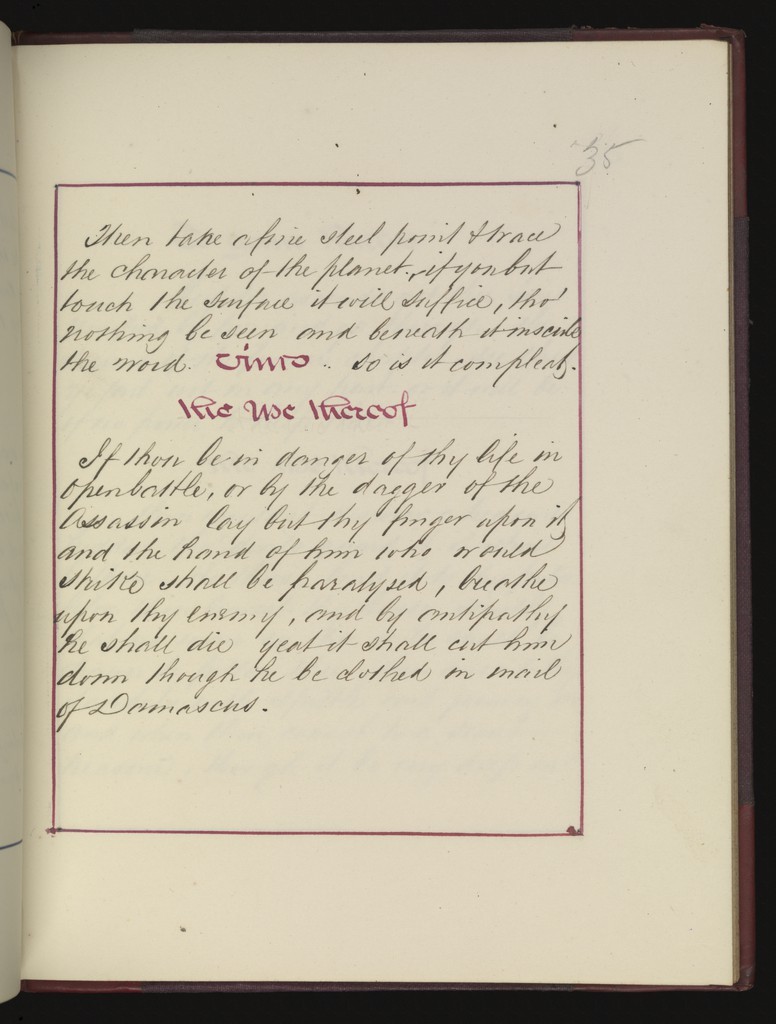 35
Then take a fine steel point & trace
the character of the planet, if you but
touch the surface it will suffice, tho'
nothing be seen and beneath it inscribe
the word. .. so is it compleat.
the Use thereof
If thou be in danger of thy life in
open battle, or by the dagger of the
Assassin lay but thy finger upon it
and the hand of him who would
strike shall be paralysed, breathe
upon thy enemy, and by antipathy
he shall die yea it shall cut him
down though he be clothed in mail
of Damascus.